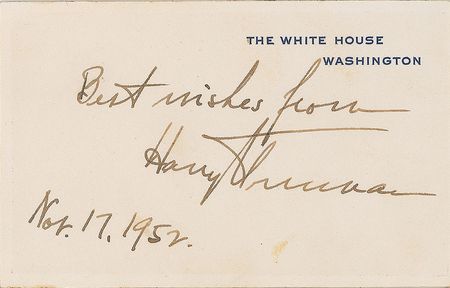 THE WHITE HOUSE
WASHINGTON
Best wishes from
Harry Truman
Nov. 17, 1952.